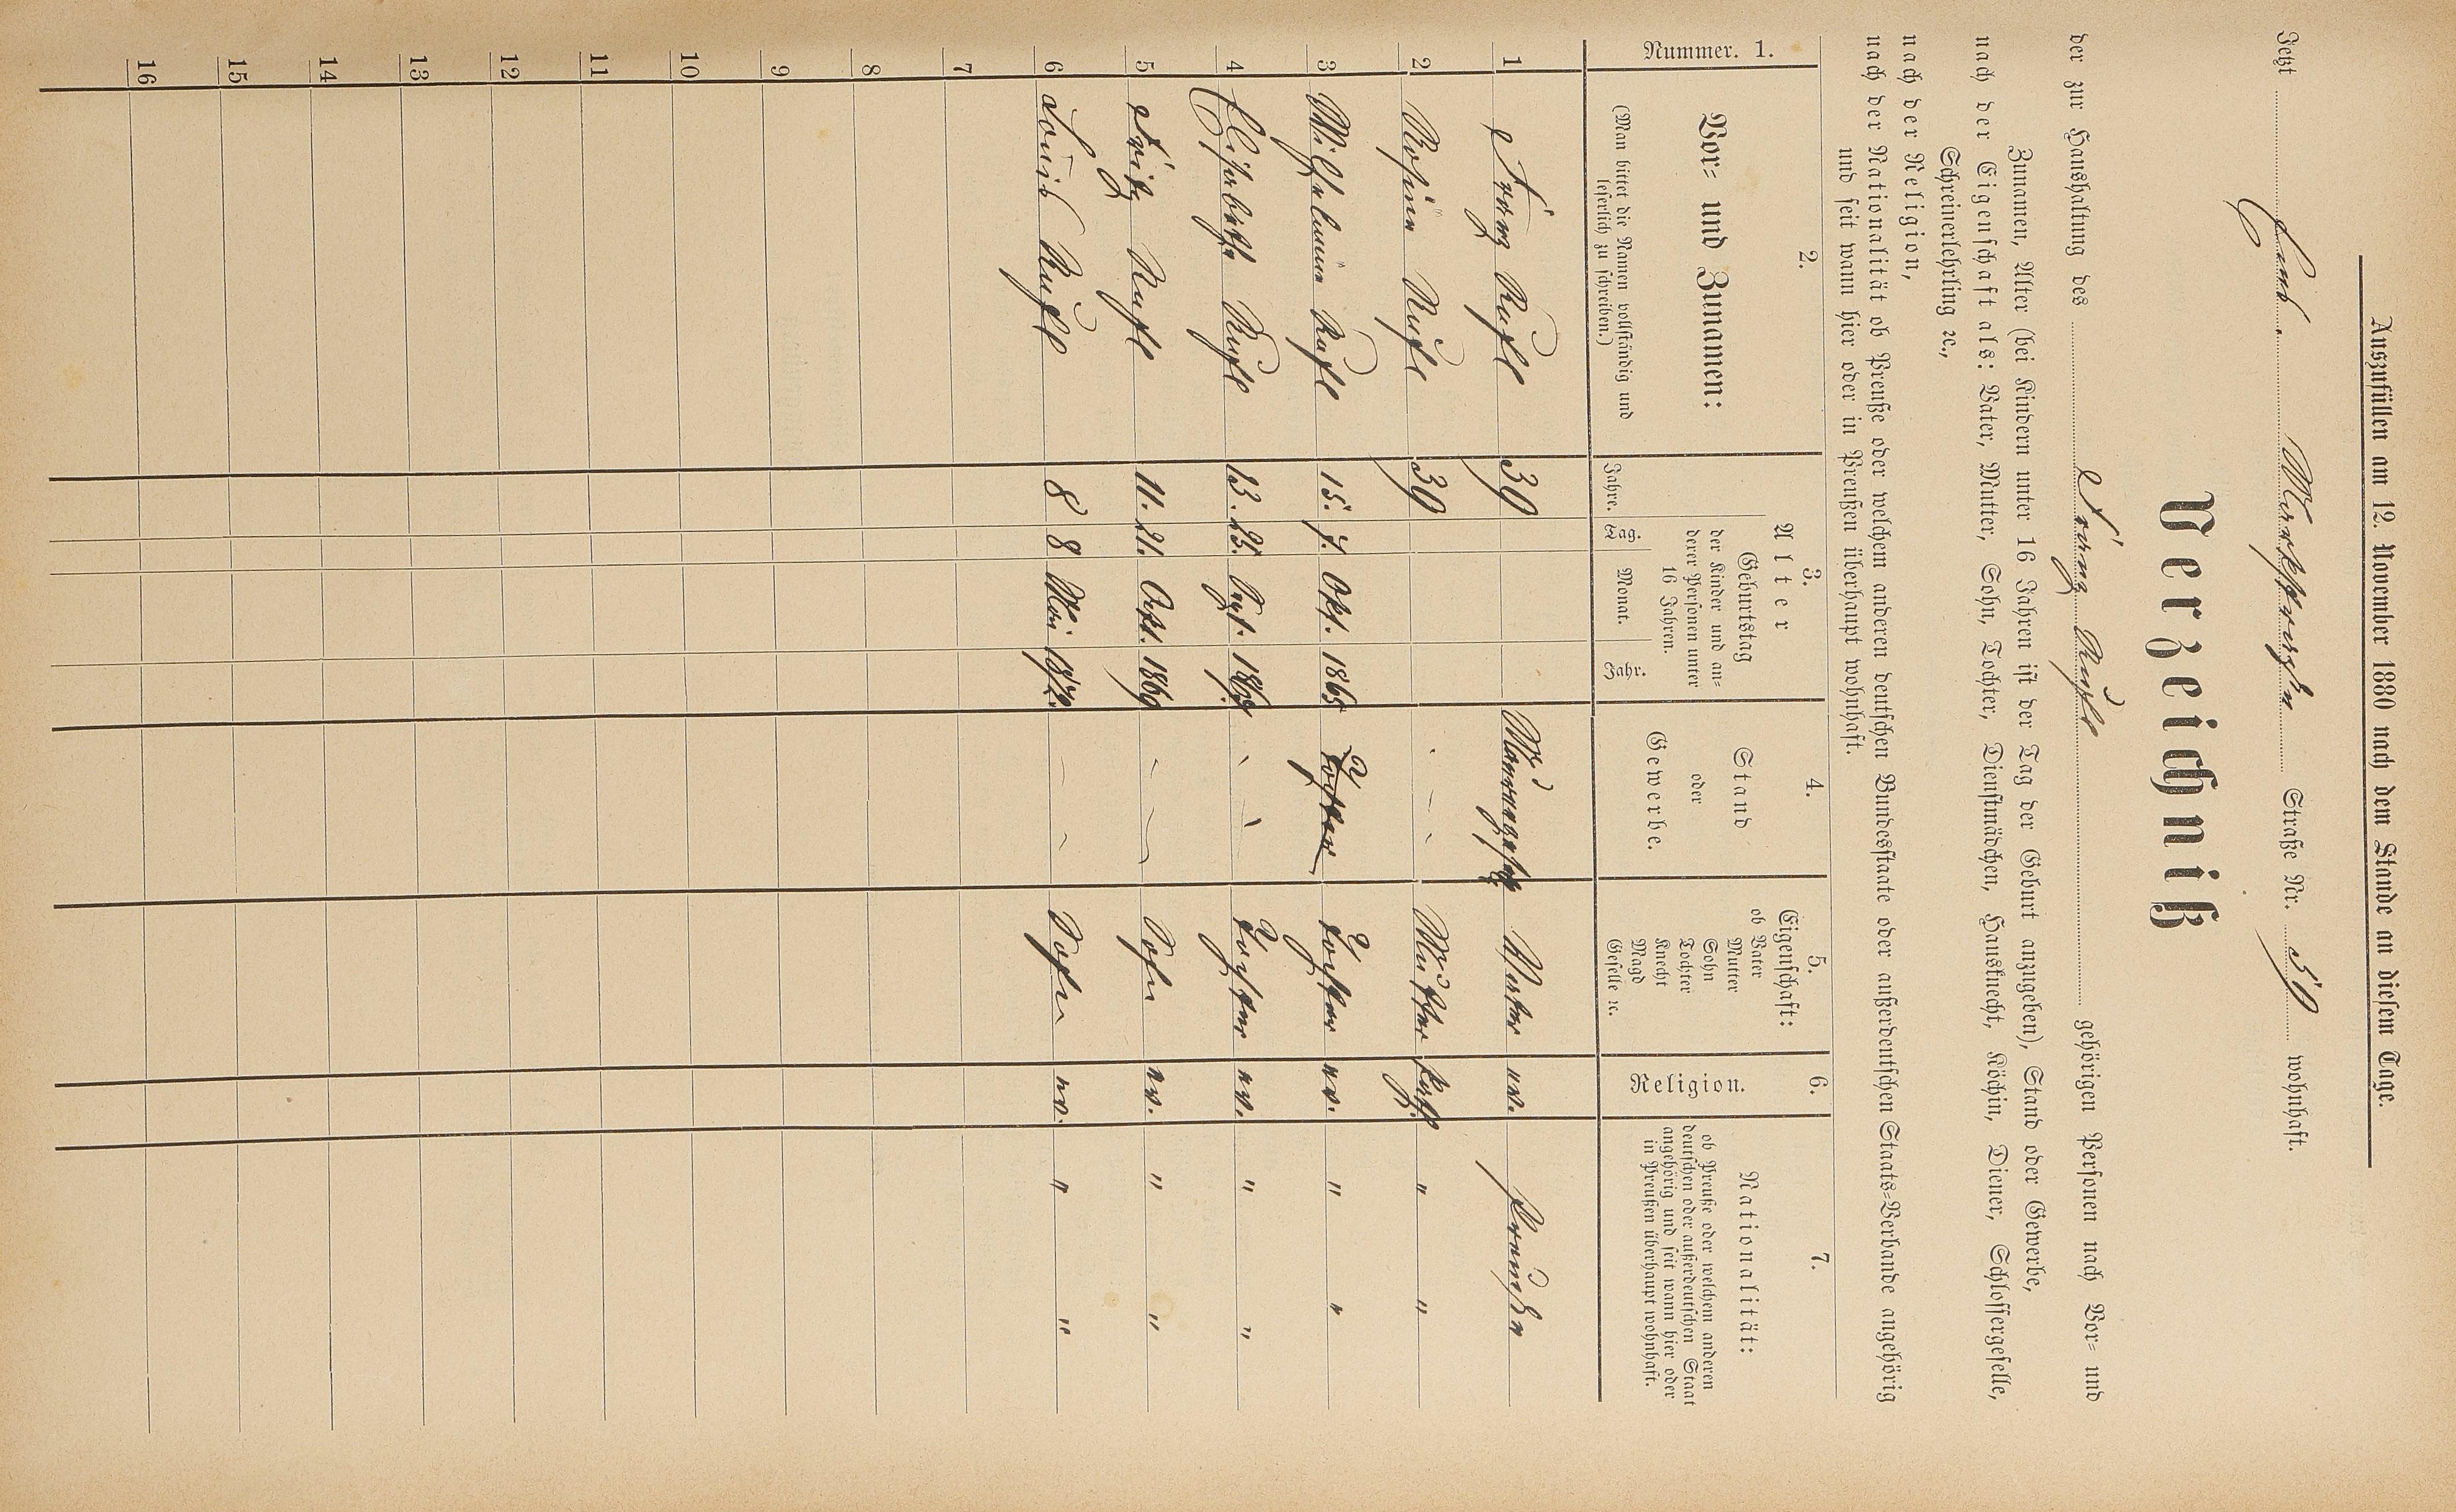 Auszufüllen am 12. November 1880 nach dem Stande an diesem Tage.
Jetzt Straße Nr. 39 wohnhaft.
Verzeichniß
der zur Haushaltung des Franz Ruhl gehörigen Personen nach Vor- und
Zunamen, Alter (bei Kindern unter 16 Jahren ist der Tag der Geburt anzugeben), Stand oder Gewerbe,
nach der Eigenschaft als: Vater, Mutter, Sohn, Tochter, Dienstmädchen, Hausknecht, Köchin, Diener, Schlossergeselle,
Schreinerlehrling ꝛc.,
nach der Religion,
nach der Nationalität ob Preuße oder welchem anderen deutschen Bundesstaate oder außerdeutschen Staats-Verbande angehörig
und seit wann hier oder in Preußen überhaupt wohnhaft.
Nummer. 1.
2.
Vor- und Zunamen:
(Man bittet die Namen vollständig und
leserlich zu schreiben.)
3.
Alter
Jahre.
Geburtstag
der Kinder und an-
derer Personen unter
16 Jahren.
Tag. Monat. Jahr.
4.
Stand
oder
Gewerbe.
5.
Eigenschaft:
ob Vater
Mutter
Sohn
Tochter
Knecht
Magd
Geselle ꝛc.
6.
Religion.
7.
Nationalität:
ob Preuße oder welchen anderen
deutschen oder außerdeutschen Staat
angehörig und seit wann hier oder
in Preußen überhaupt wohnhaft.
1 Franz Ruhl 39 Vater ev. Preußen
2 Rosina Ruhl 39 Mutter kath. " "
3 Wilhelmine Ruhl 15. 7. Okt. 1865 Tochter Tochter ev. " "
4 Elisabetha Ruhl 13. 25. 1867 Tochter ev. " "
5 Fritz Ruhl 11. 21. Okt. 1869 Sohn ev. " "
6 Louis Ruhl 8 8 Mai 1872. Sohn ev. " "
7
8
9
10
11
12
13
14
15
16